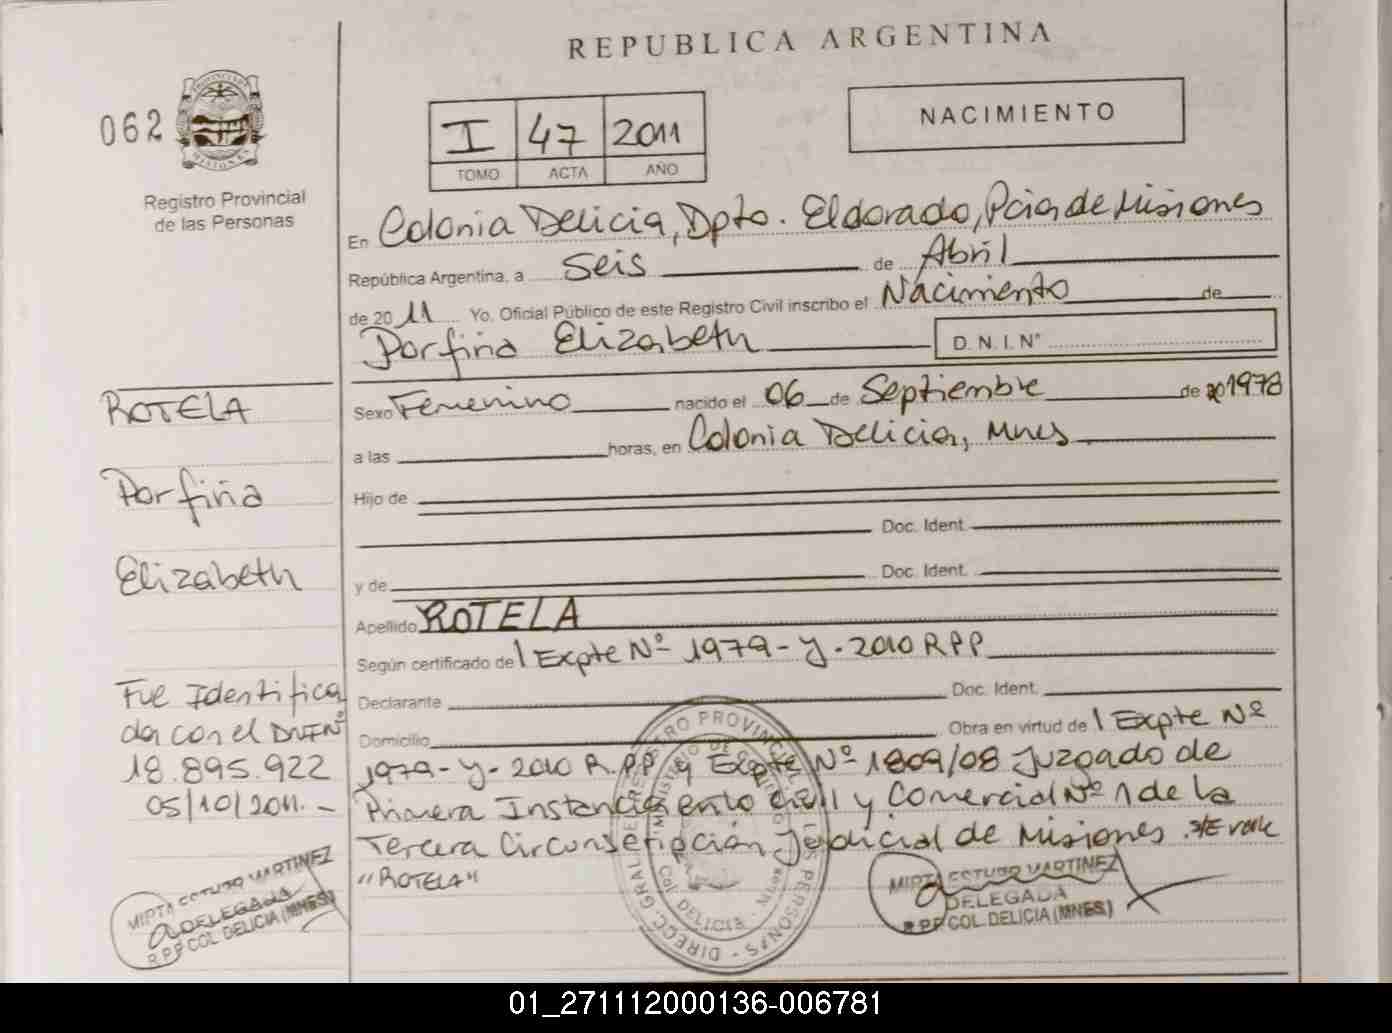 REPUBLICA ARGENTINA
062
PROVINCIA DE MISIONES
Registro Provincial
de las Personas
I 47 2011
TOMO ACTA AÑO
NACIMIENTO
En Colonia Delicia, Dpto. Eldorado, Pcia de Misiones
República Argentina, a Seis de Abril
de 2011 Yo, Oficial Público de este Registro Civil inscribo el Nacimiento de
Porfiria Elizabeth D. N. I. N°
ROTELA
Porfiria
Elizabeth
Sexo Femenino nacido el 06 de Septiembre de 20 1978
a las horas, en Colonia Delicia, Mnes
Hijo de
Doc. Ident.
y de Doc. Ident.
Apellido ROTELA
Según certificado de Expte Nº 1979-Y-2010 RPP
Declarante Doc. Ident.
Domicilio Obra en virtud de Expte Nº
1979-Y-2010 R.P.P y Expte Nº 1809/08 Juzgado de
Primera Instancia en lo Civil y Comercial Nº 1 de la
Tercera Circunscripción Judicial de Misiones. S/E vale
"ROTELA"
Fue Identifica
da con el DNI Nº
18.895.922
05/10/2011.-
MIRTA ESTUBO MARTINEZ
DELEGADA
R.P.P COL. DELICIA (MNES)
DIRECC. GRAL. DE REGISTRO PROVINCIAL DE LAS PERSONAS
MINISTERIO DE GOBIERNO
Col. DELICIA - Mnes
MIRTA ESTUBO MARTINEZ
DELEGADA
R.P.P COL. DELICIA (MNES)
01_271112000136-006781